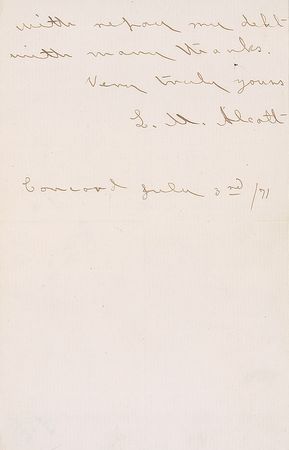 with repay my debt
with many thanks.
Very truly yours
L. M. Alcott
Concord July 3rd /71